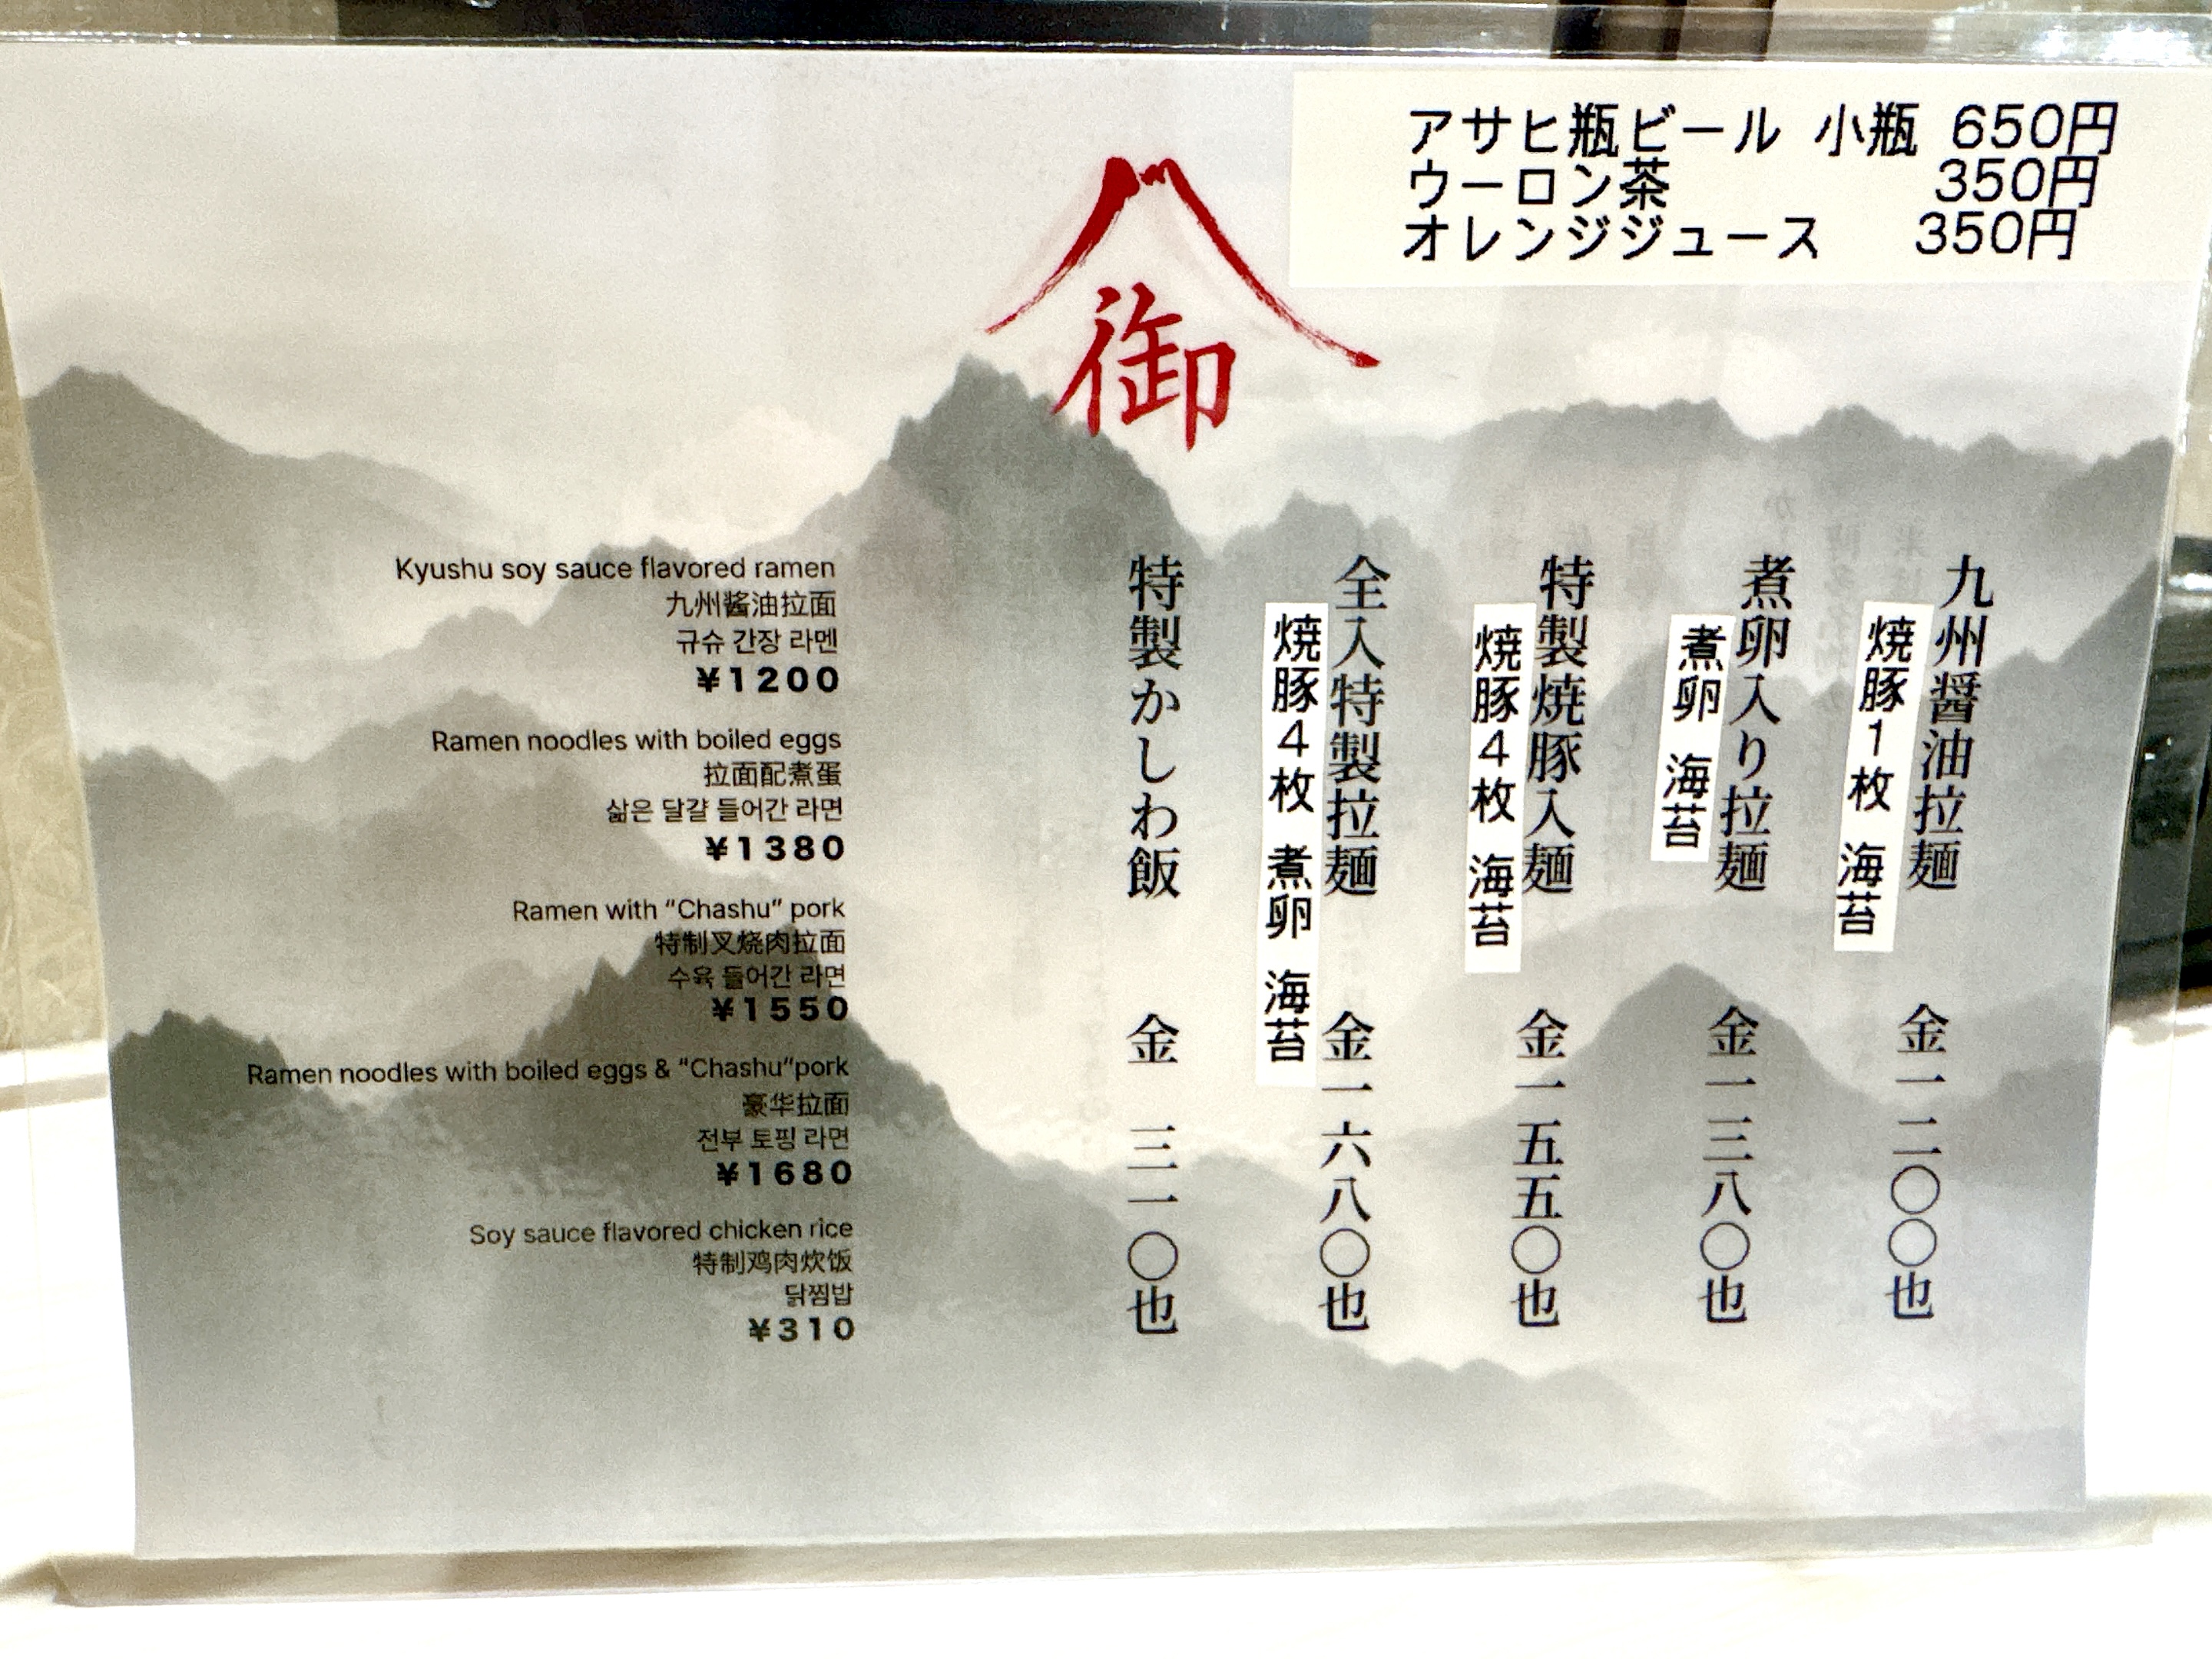 アサヒ瓶ビール 小瓶 650円
ウーロン茶 350円
オレンジジュース 350円
御
九州醤油拉麺 金一二〇〇也
焼豚1枚 海苔
煮卵入り拉麺 金一三八〇也
煮卵 海苔
特製焼豚入麺 金一五五〇也
焼豚4枚 海苔
全入特製拉麺 金一六八〇也
焼豚4枚 煮卵 海苔
特製かしわ飯 金三一〇也
Kyushu soy sauce flavored ramen
九州酱油拉面
규슈 간장 라멘
¥1200
Ramen noodles with boiled eggs
拉面配煮蛋
삶은 달걀 들어간 라면
¥1380
Ramen with “Chashu” pork
特制叉烧肉拉面
수육 들어간 라면
¥1550
Ramen noodles with boiled eggs & “Chashu”pork
豪华拉面
전부 토핑 라면
¥1680
Soy sauce flavored chicken rice
特制鸡肉炊饭
닭찜밥
¥310